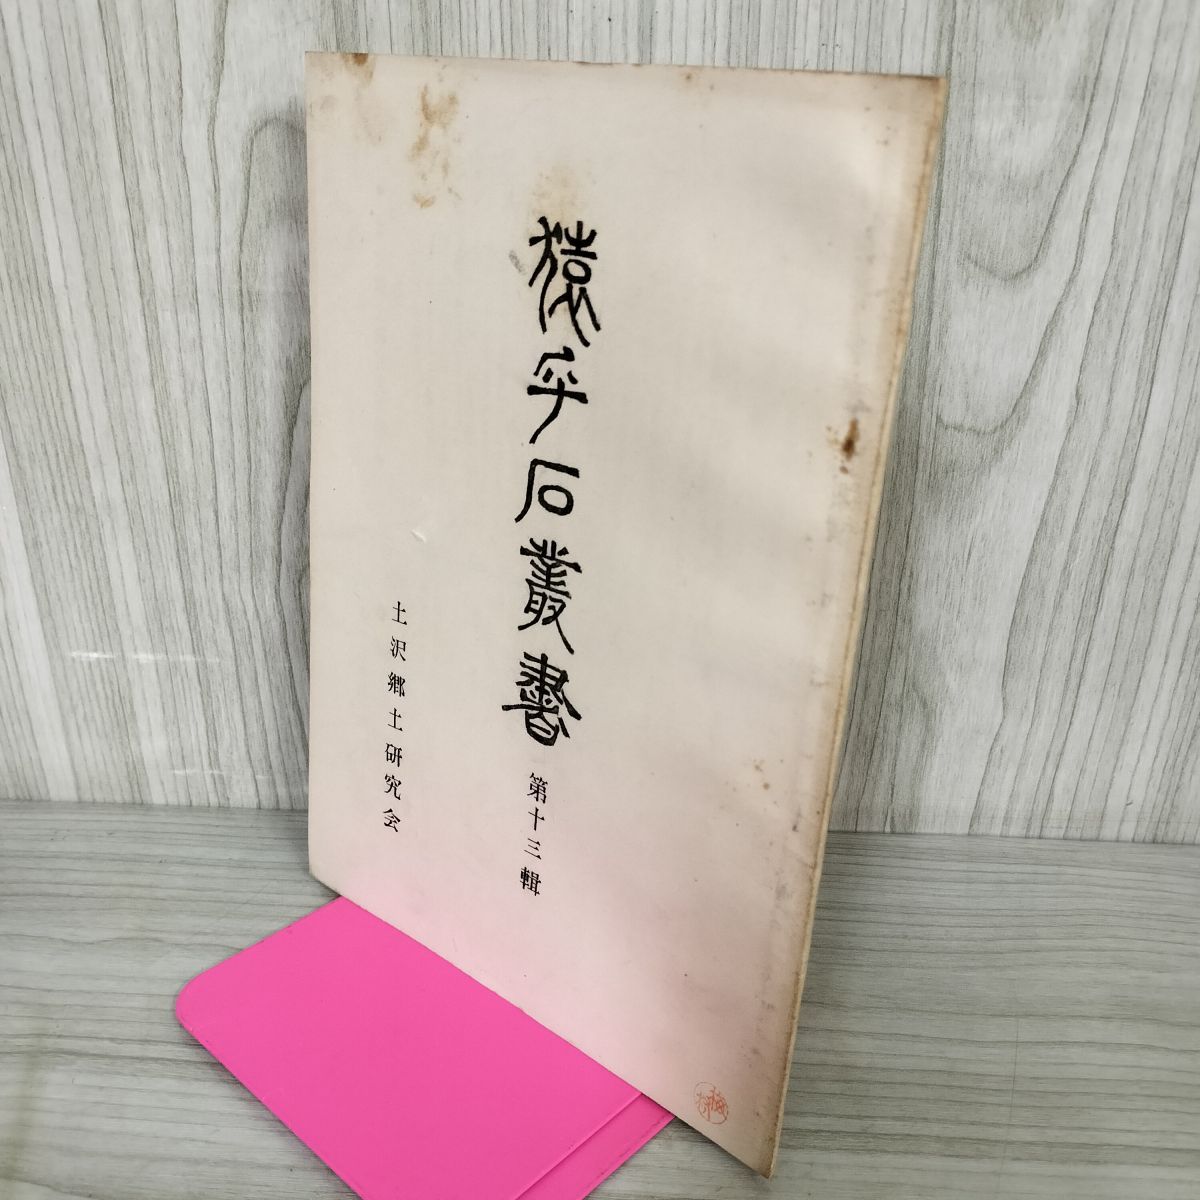 猿乎石叢書
第十三輯
土沢郷土研究会